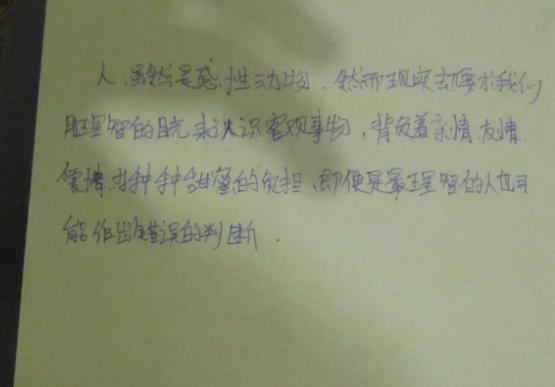 人、虽然是感性动物，然而现实却要求我们
用理智的目光来认识客观事物，背负着亲情、友情、
爱情、种种甜蜜的负担，即便是最理智的人也可
能作出错误的判断．